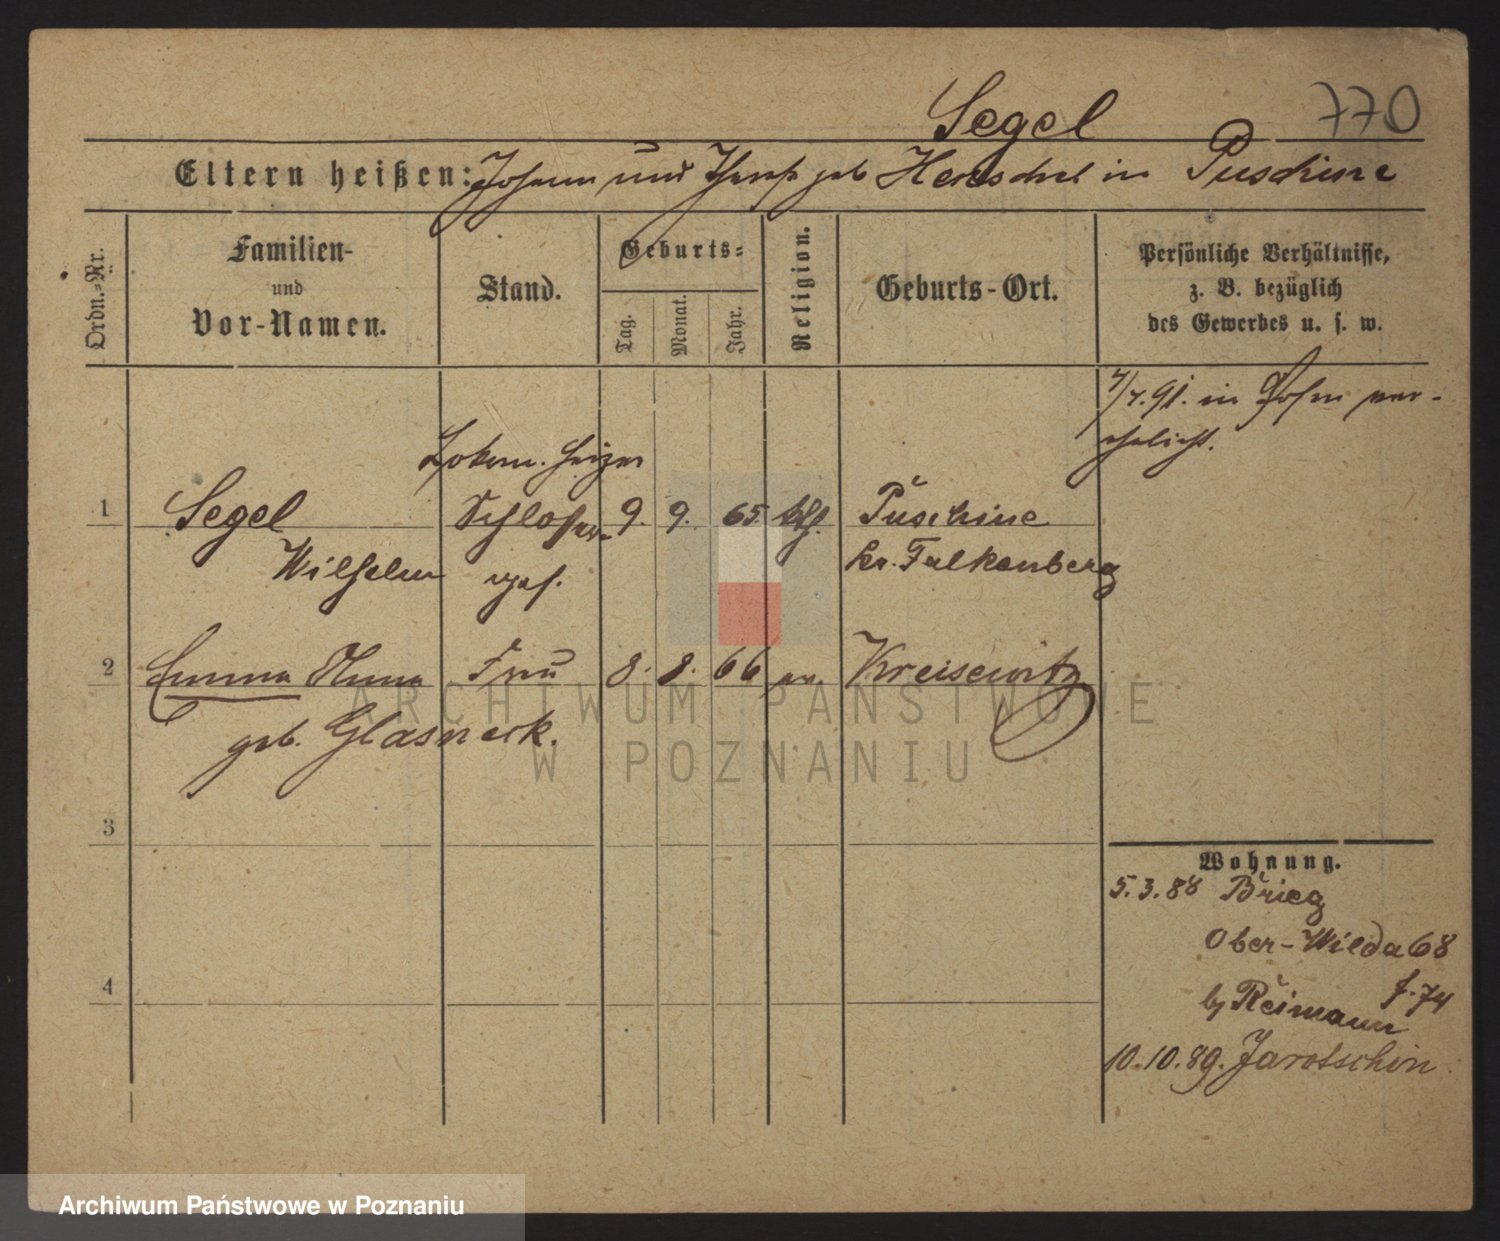 Segel 770
Eltern heißen: Johann und Theres geb Henschel in Puschine
Ordn.-Nr.
Familien-
und
Vor-Namen.
Stand.
Geburts-
Tag.
Monat.
Jahr.
Religion.
Geburts-Ort.
Persönliche Verhältnisse,
z. B. bezüglich
des Gewerbes u. s. w.
4/7.91. in Posen ver-
ehelicht.
Lokom. Heizer
1 Segel Schlosser 9. 9. 65 kth. Puschine
Wilhelm ges. kr. Falkenberg
2 Emma Anna Frau 8. 8. 66 ev. Kreisewitz
geb. Glasneck.
3
4
Wohnung.
5.3.88 Brieg
Ober-Wilda 68
f. 74
by Reimann
10.10.89. Jarotschin
ARCHIWUM PAŃSTWOWE
W POZNANIU
Archiwum Państwowe w Poznaniu